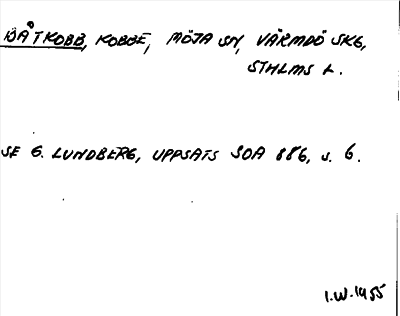 BÅTKOBB, KOBBE, MÖJA SN, VÄRMDÖ SKG,
STHLMS L.
SE G. LUNDBERG, UPPSATS SOA 886, s. 6.
I.W. 1955